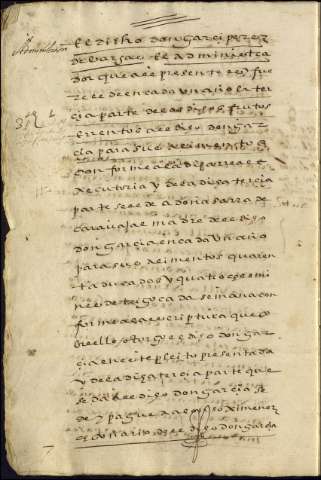 Administracion
el dicho don garci perez
de bargas. el administra
dor que al presente es y fue
re le de en cada un año la ter
cia parte de los dichos frutos
e rrentos a el dicho don gar
cia para sus alimentos
con forme a la dicha rreal e
xecutoria y de la dicha tercia
parte se le de a doña sarra de
carauajal madre de el dicho
don garcia en cada un año
para sus alimentos quaren
ta ducados y quatro celemi
nes de trigo cada semana con
forme a la escriptura que
de ello otorgo el dicho don gar
cia en este pleito presentada
y de la dicha tercia parte que
se da a el dicho don garcia se
de y pague a alonso ximenez
el dicho don garcia